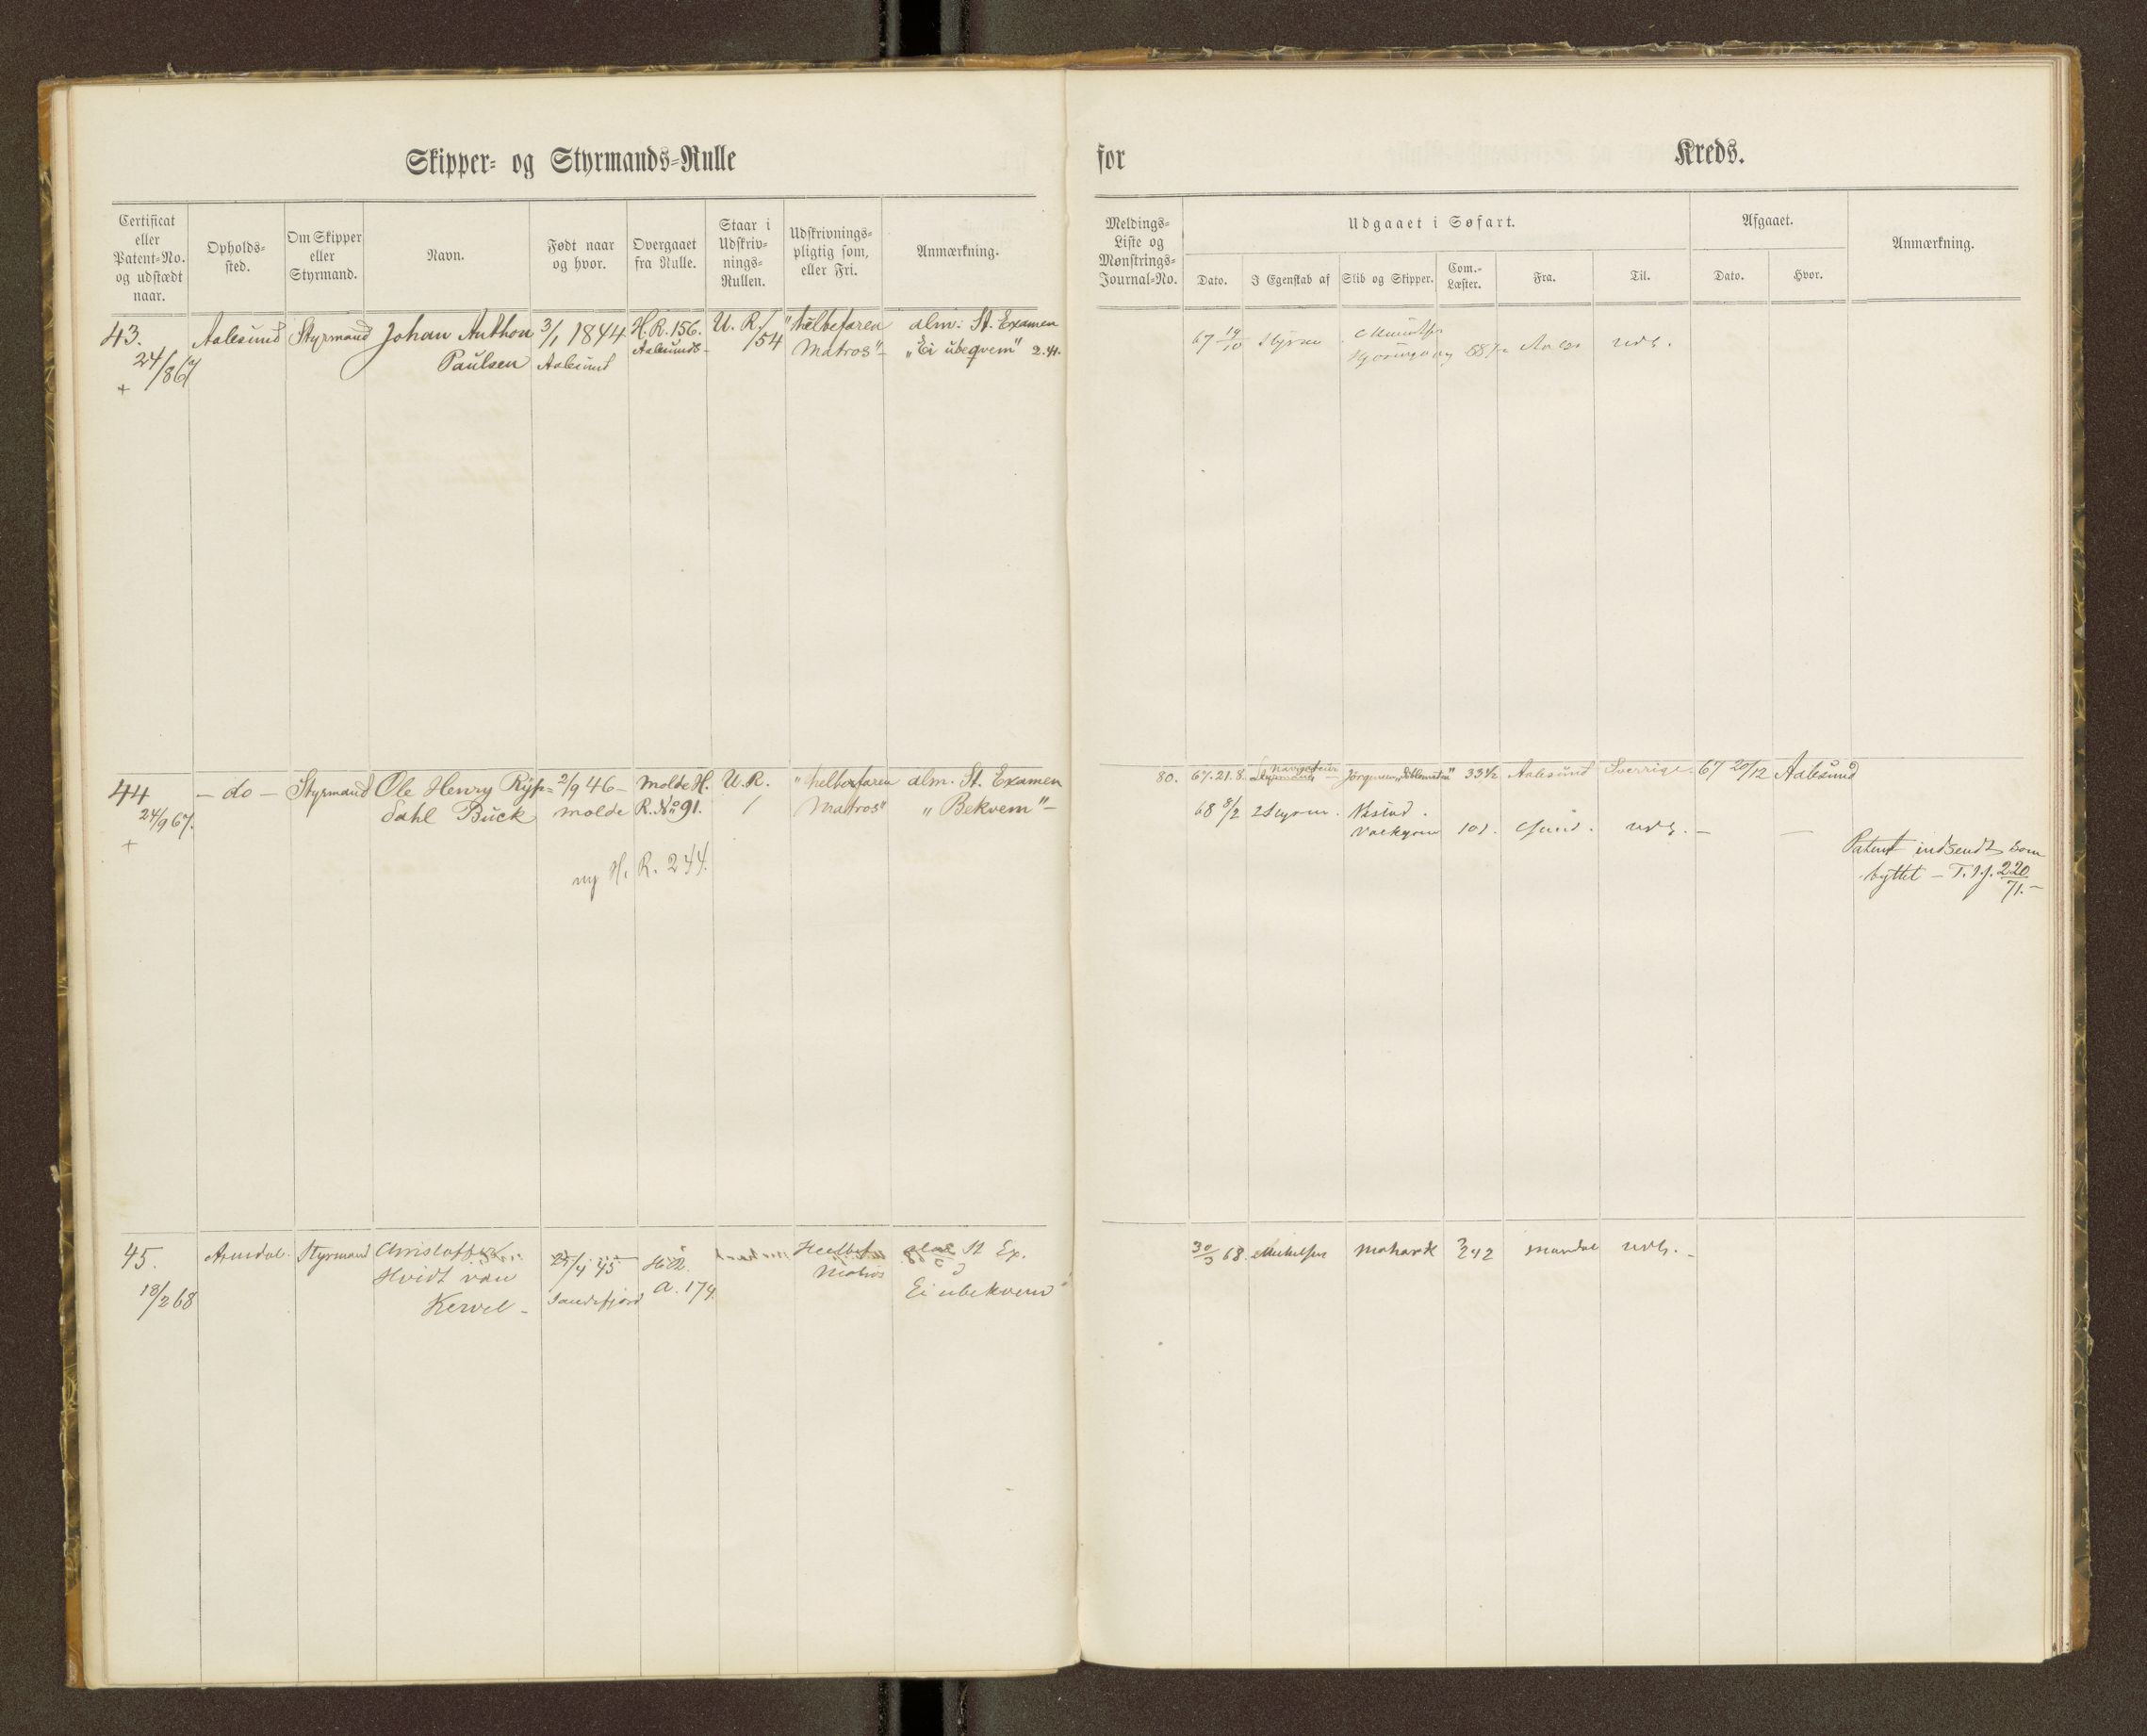 Skipper- og Styrmands-Rulle
Certificat eller Patent-No. og udstædt naar.
Opholds-sted.
Om Skipper eller Styrmand.
Navn.
Født naar og hvor.
Overgaaet fra Rulle.
Staar i Udskriv-nings-Rullen.
Udskrivnings-pligtig som, eller Fri.
Anmærkning.
43. Aalesund Styrmand Johan Anthon 3/1 1844 H.R. 156. U.R./ "helbefaren alm: St. Examen
24/9 67 Paulsen Aalesund Aalesunds- /54 Matros"- "Ei ubeqvem" 2.
+
44 - do - Styrmand Ole Henry Ryp= 2/9 46- Molde H. U.R. "helbefaren alm. St. Examen
24/9 67. Dahl Buck Molde R. No 91. / Matros" "Bekvem"-
+
ny H. R. 244.
45. Arendal. Styrmand Christoffer 25/4 45 Heelbef St Ex.
18/2 68 Hvidt van Sandefjord a. 174. Matros Ei ubekvem
Kervel -
for Kreds.
Meldings-Liste og Mønstrings-Journal-No.
Udgaaet i Søfart.
Dato.
I Egenskab af
Skib og Skipper.
Com.-Læster.
Fra.
Til.
Afgaaet.
Dato.
Hvor.
Anmærkning.
67 19/10 Styrm
udl.
80. 67. 21. 8. Jörgensen 33½ Aalesund Sverrige. 67 20/12 Aalesund
68 8/2 2 Styrm.
101. udl. - -
Patent indsendt som
byttet - T.I.J. 220/71.-
30/3 68. 242 Mandal udl. -